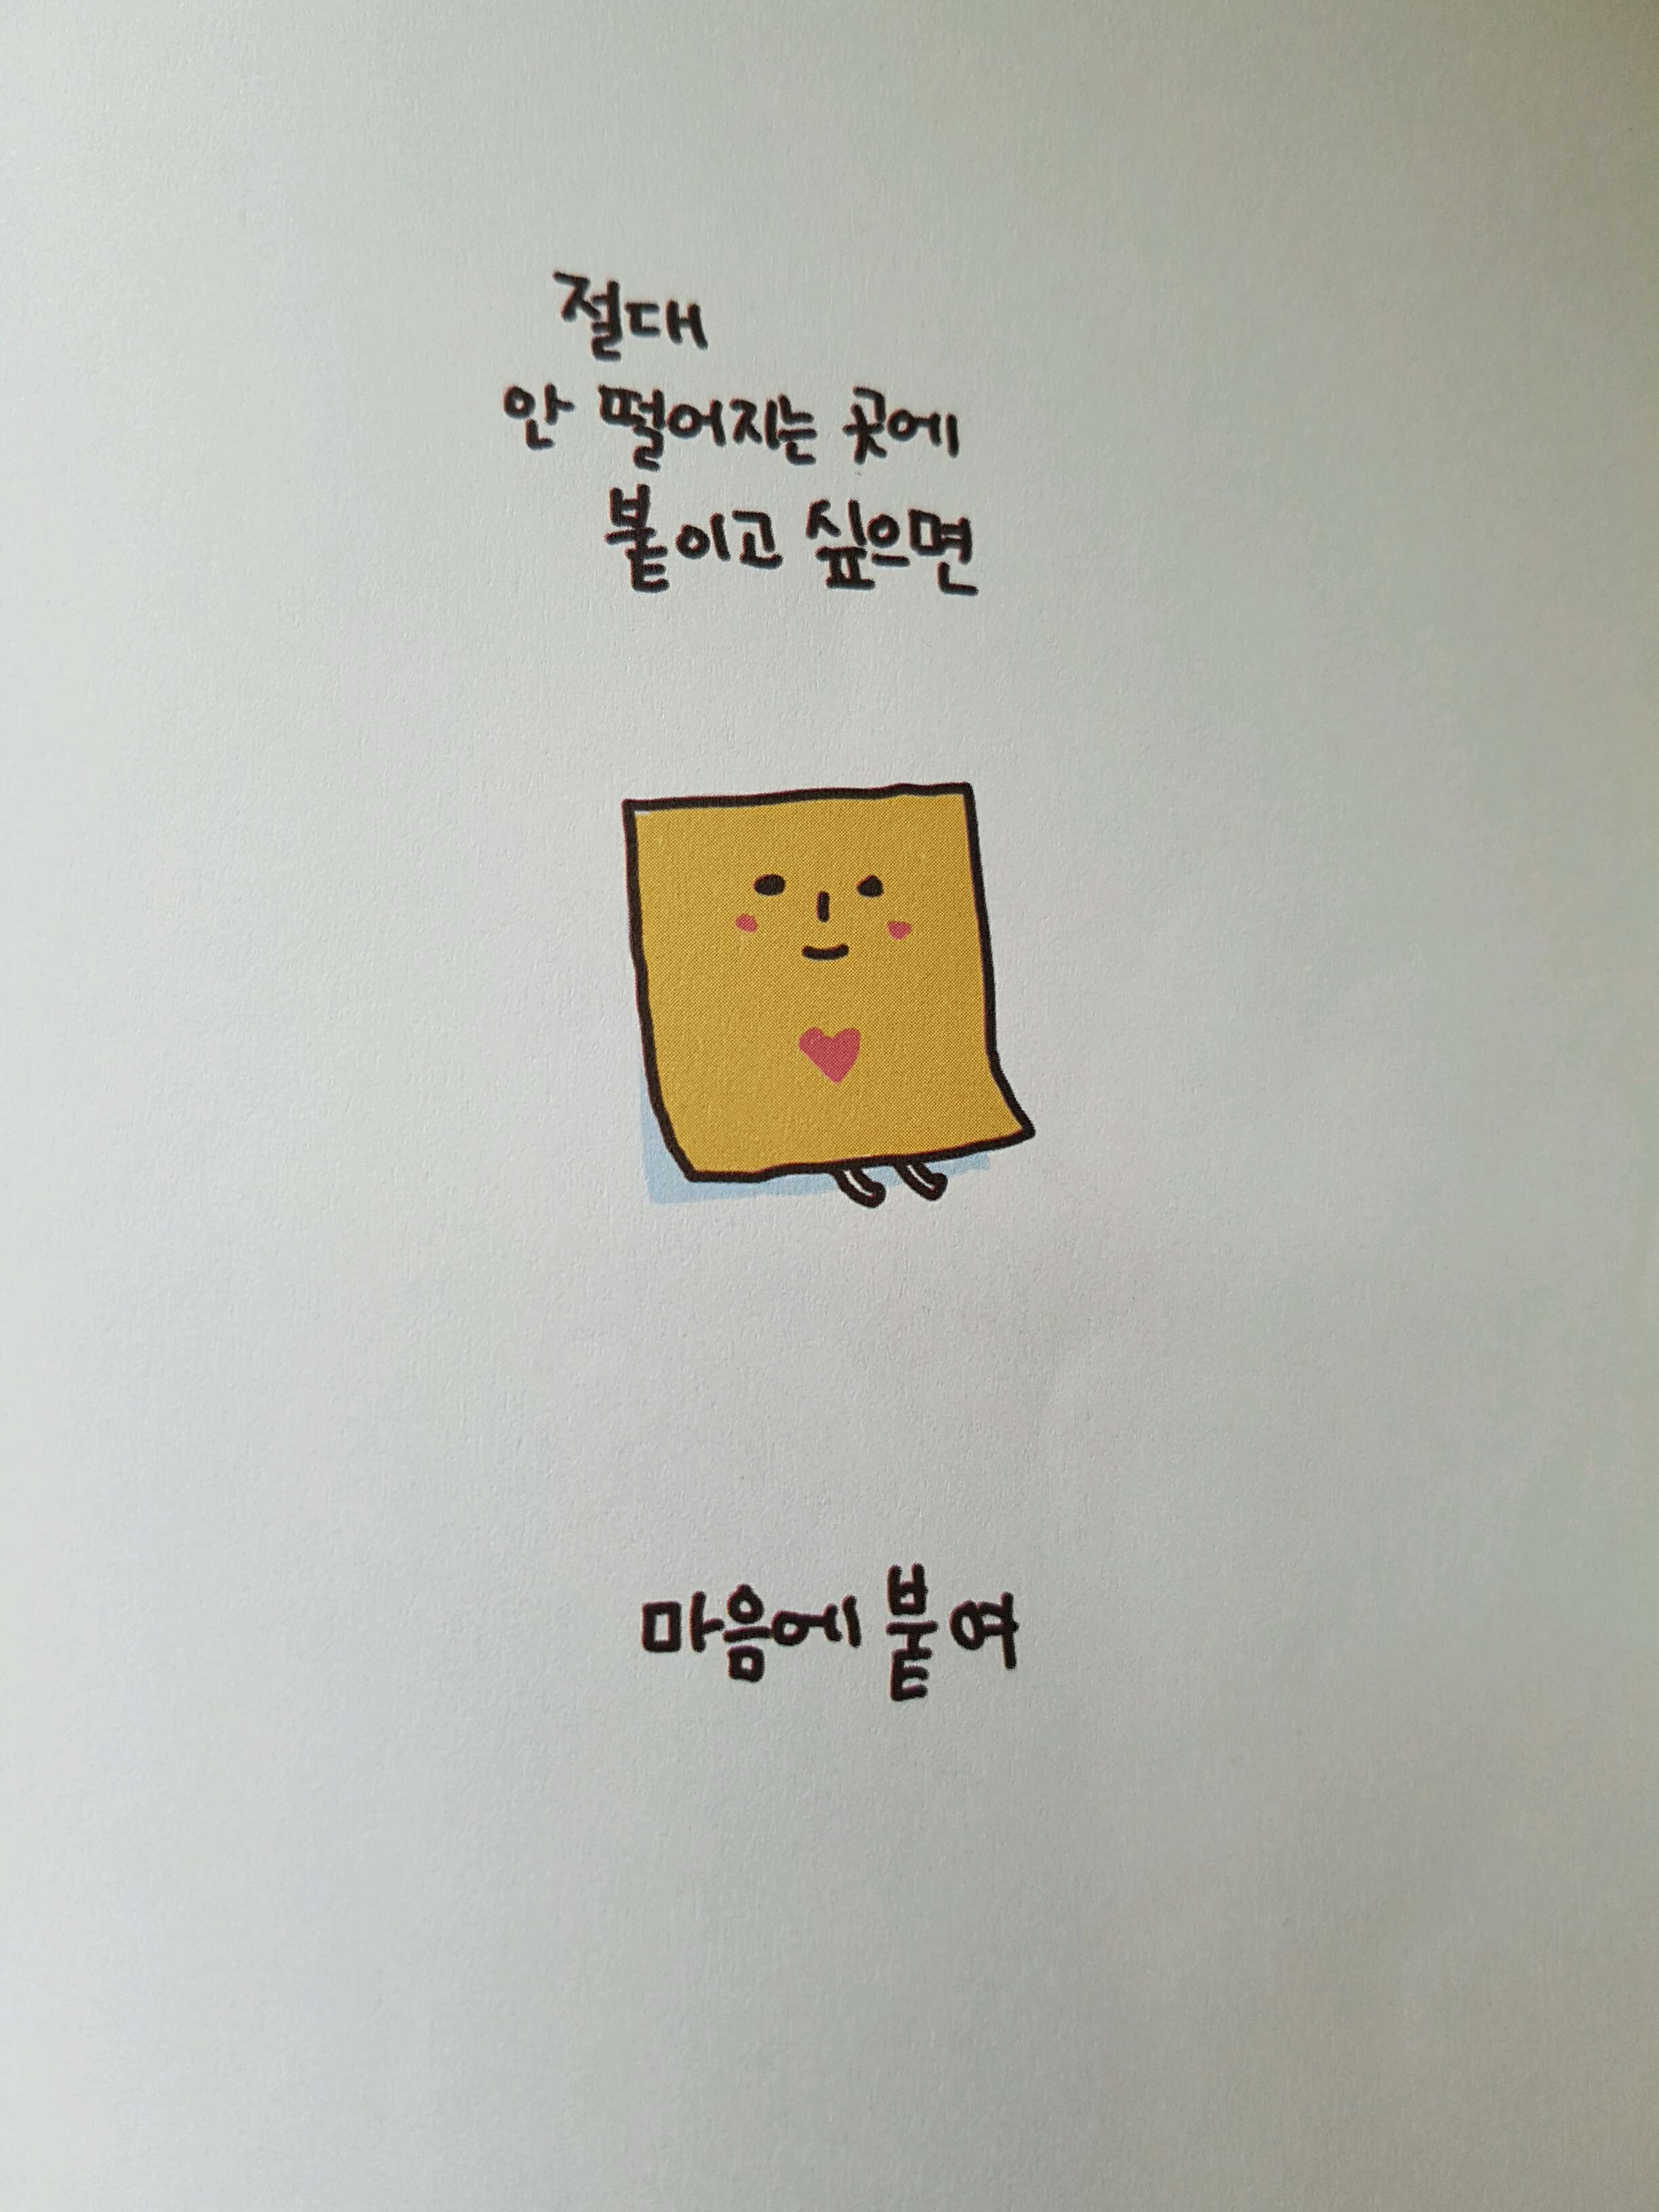 절대
안 떨어지는 곳에
붙이고 싶으면
마음에 붙여